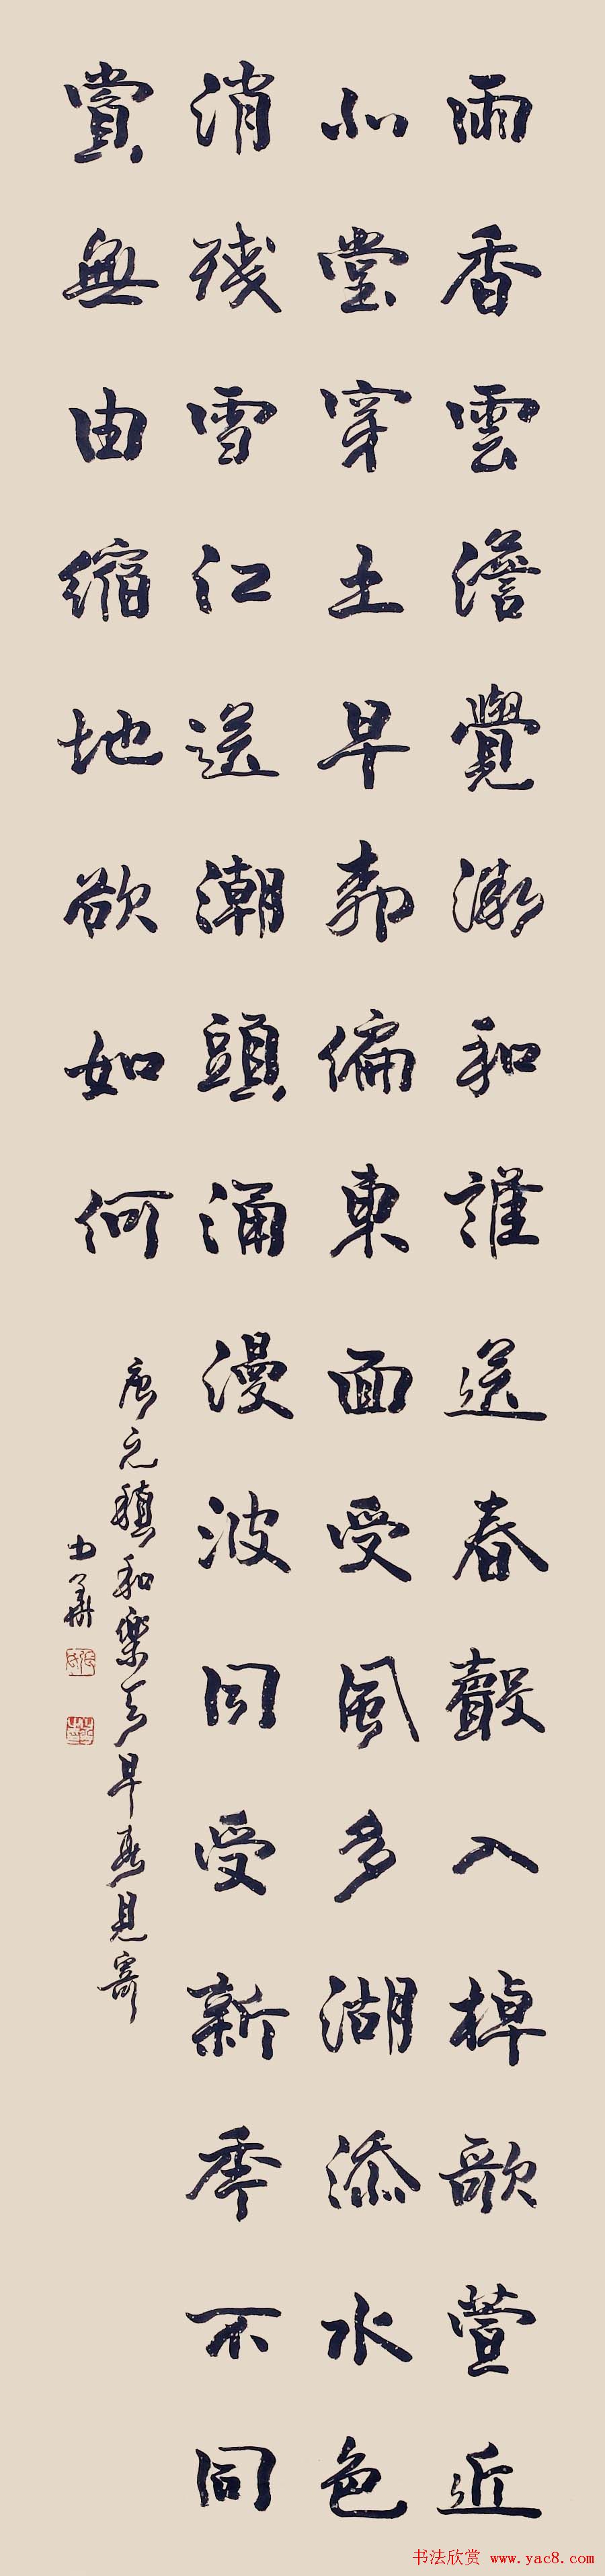 雨香雲澹覺漸和誰送春聲入棹歌萱近
北堂穿土早柳偏東面受風多湖添水色
消殘雪江送潮頭涌漫波同受新年不同
賞無由縮地欲如何
唐元稹和樂天早春見寄
華
书法欣赏 www.yac8.com